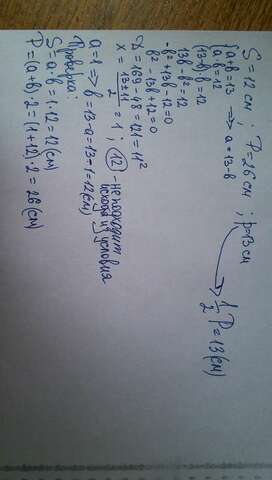 S=12 см; P=26 см; p=13 см
1/2 P=13(см)
{a+b=13
a·b=12 => a=13-b
(13-b)b=12
13b-b²=12
-b²+13b-12=0
b²-13b+12=0
D=169-48=121=11²
x=13±11/2=1; 12 - не подходит
исходя из условия
a=1 => b=13-a=13-1=12(см)
Проверка:
S=a·b=1·12=12(см)
P=(a+b)·2=(1+12)·2=26(см)